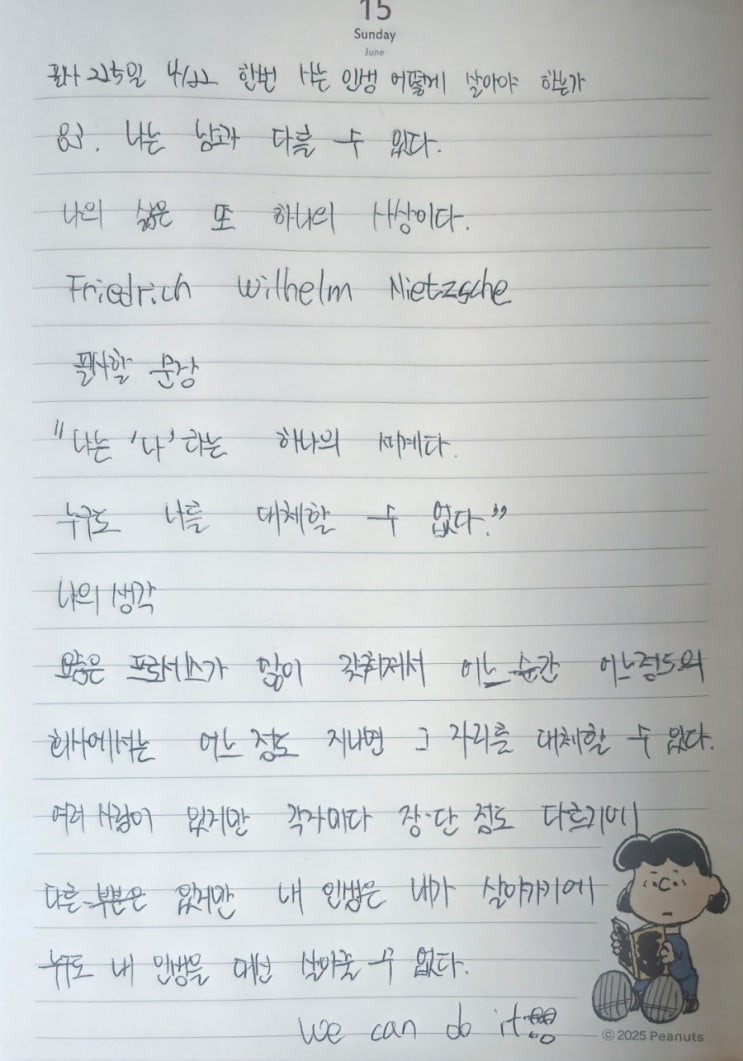 15
Sunday
June
필사 215일 4/22 한번 사는 인생 어떻게 살아야 하는가
83. 나는 남과 다를 수 있다.
나의 삶은 또 하나의 사상이다.
Friedrich Wilhelm Nietzsche
필사할 문장
"나는 '나'라는 하나의 세계다.
누구도 나를 대체할 수 없다."
나의 생각
요즘은 프로세스가 많이 갖춰져서 어느 순간 어느정도의
회사에서는 어느 정도 지나면 그 자리를 대체할 수 있다.
여러 사람이 있지만 각자마다 장·단 점도 다르기에
다른 부분은 있지만 내 인생은 내가 살아가기에
누구도 내 인생을 대신 살아줄 수 없다.
We can do it
© 2025 Peanuts